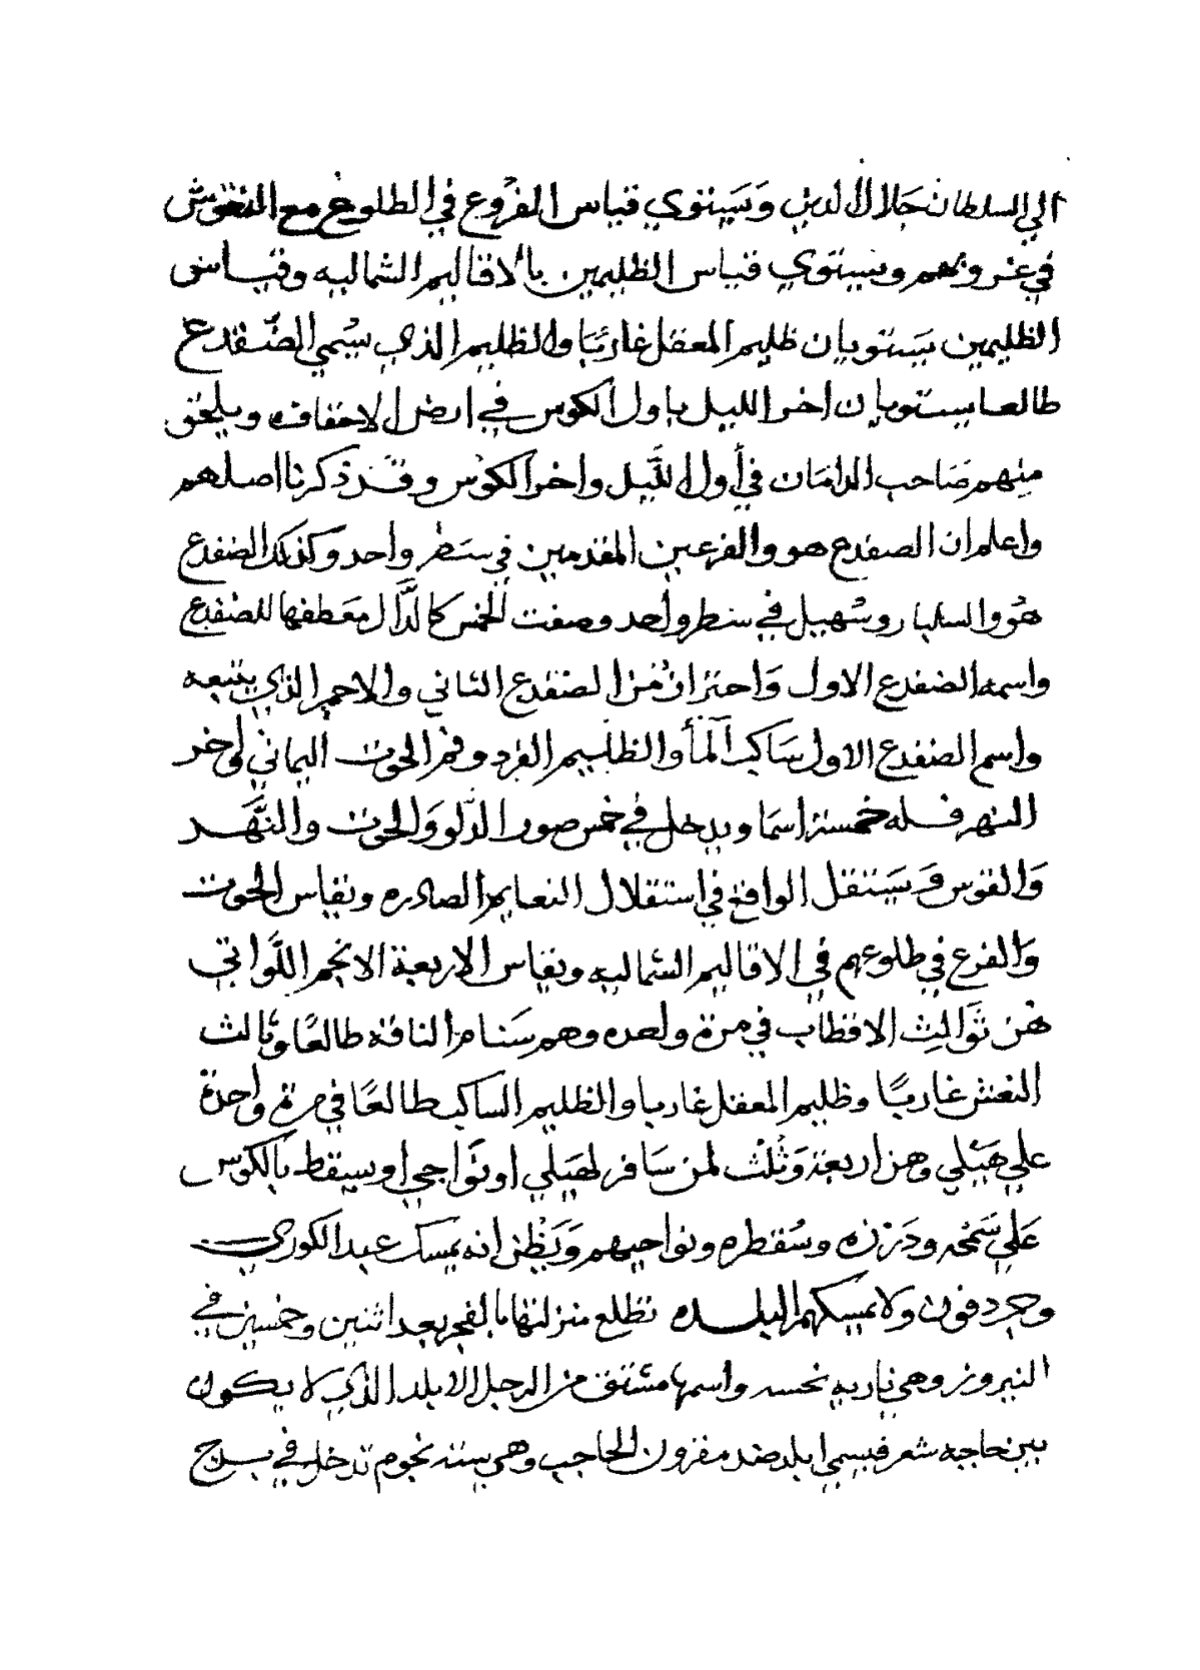 الي السلطان جَلال الدين وَيَستوي قياس الفرُوع في الطلوع مع النعوش
في غروبهم ويستوي قياس الظليمين بالاقاليم الشماليه وقياس
الظليمين يستويان ظليم المعقل غاربًا والظليم الذي سُمي الضفدع
طالعا يستويان اخر الليل باول الكوس في ارض الاحقاف ويلحق
منهم صَاحب الدامَان في أول اللَّيل واخر الكوس وقد ذكرنا اصلهم
واعلم ان الصفدع هو والفرعين المقدمين في سَطر واحد وكذلك الضفدع
هُو والسلبار وسُهيل في سطر واحد وصفت الخمس كالدَّال معَطفها للضفدع
واسمه الضفدع الاول وَاحتزان مُن الضفدع الثاني والاحمر الذي يتبعه
واسم الضفدع الاول سَاكب ألمأ والظليم الفرد وفم الحوت اليماني واخر
النهر فله خمسة اسمَا ويدخل في خمس صور الدَّلو وَالحوت والنَّهر
وَالقوس وَ يَستقل الواقع في استقلال النعايم الصادره ويقاس الحوت
وَالفرع في طلوعهم في الاقاليم الشماليه ويقاس الاربعة الانجم اللَّواتي
هُن ثَوالِث الاقطاب في مرة واحده وهم سَنام الناقة طالعًا وثالث
النعش غاربًا وظليم المعقل غاربا والظليم الساكب طالعًا في مرة واحدة
علي هَيْلي وهن اربعة وَثُلْث لمن سَافر لهَيلي او نَواحيها ويسقط بالكوس
عَلي سَمْحه ودَرْزه وسُقطره ونواحيهم وَيَظن انه يمسك عبد الكوري
وجردفون ولا يمسكهم البلده تطلع منزلتها بالفجر بعد اثنين وخمسين في
النيروز وهي ناريه نحسه واسمها مشتق من الرجل الابلد الذي لا يكون
بين حاجبه شعر فيسمي ابلد ضد مقرون الحاجب وهي ستة نجوم تدخل في برج